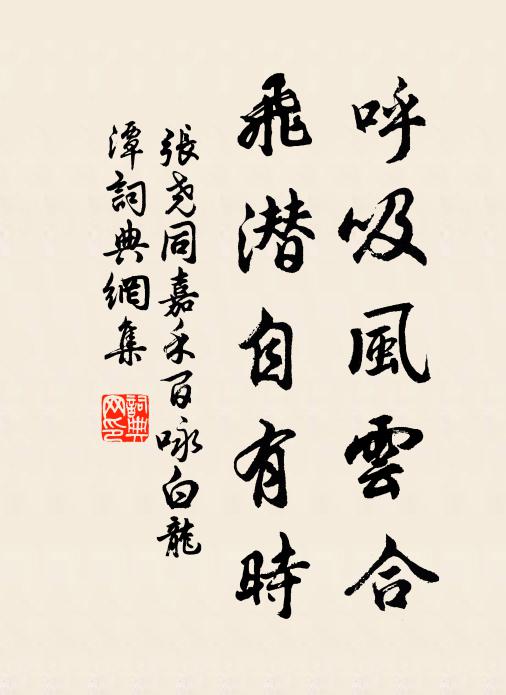 呼吸風雲合
飛潛自有時
張堯同嘉禾百咏白龍
潭詞典網集
詞典
网印